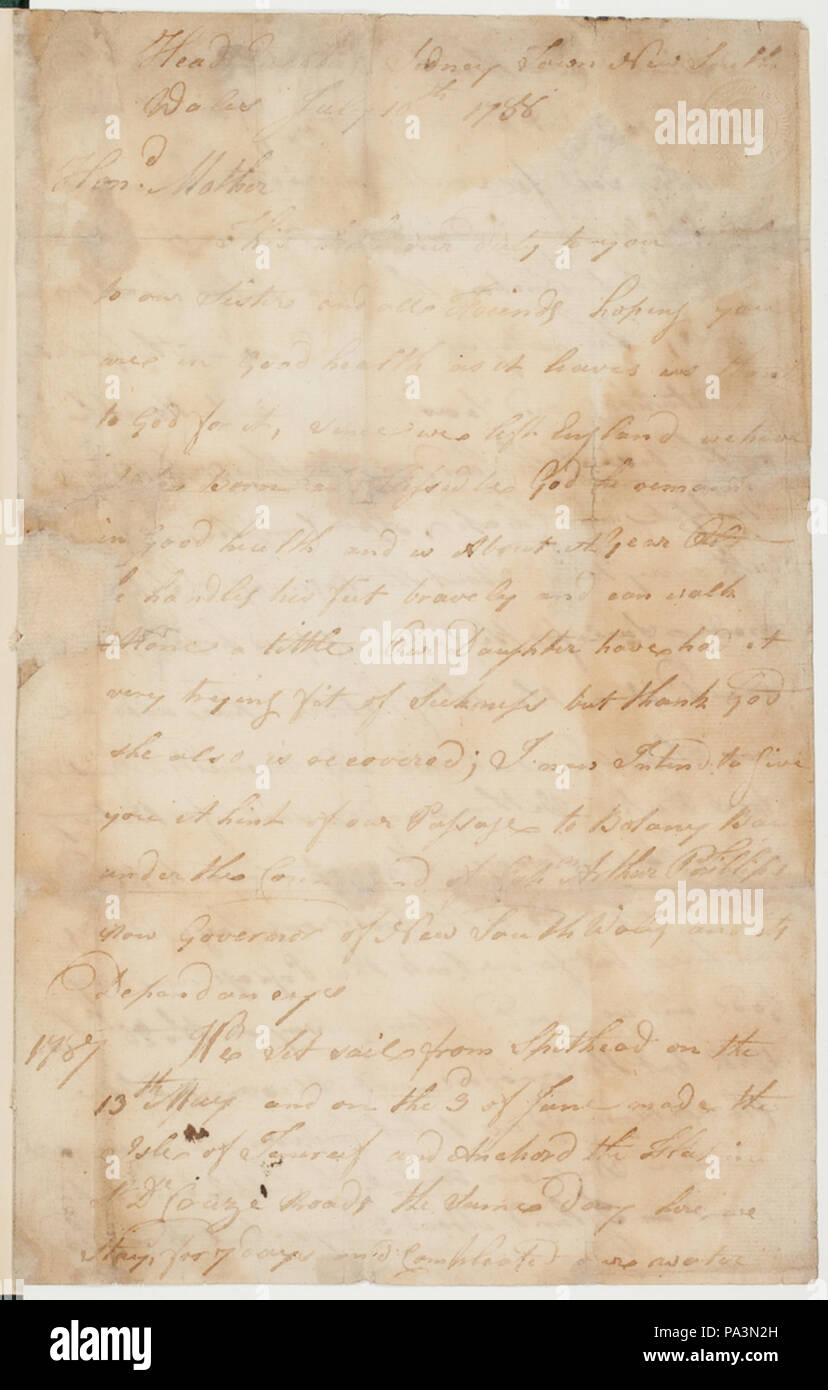 Head Sidney Town New South
Wales July 1788
Hon.d Mother
This our duty to you
to our Sister and all Friends hoping you
are in Good health as it leaves us
to God for it, Since we left England we have
Born God he
in Good health and is About A Year Old
he handles his feet bravely and can walk
Alone a little Our Daughter have had A
very trying fit of Sickness but thank God
she also is recovered; I now Intend to Give
you A hint of our Passage to Botany Bay
under the of Arthur Phillips
now Governor of New South Wales and its
Dependancys
1787 We Set sail from Spithead on the
13th May and on the 3 of June made the
Isle of Tenereef and Anchord the
Roads the Same Day here we
Stay, for 7 days and Compleated our water
alamy
Image ID: PA3N2H
www.alamy.com